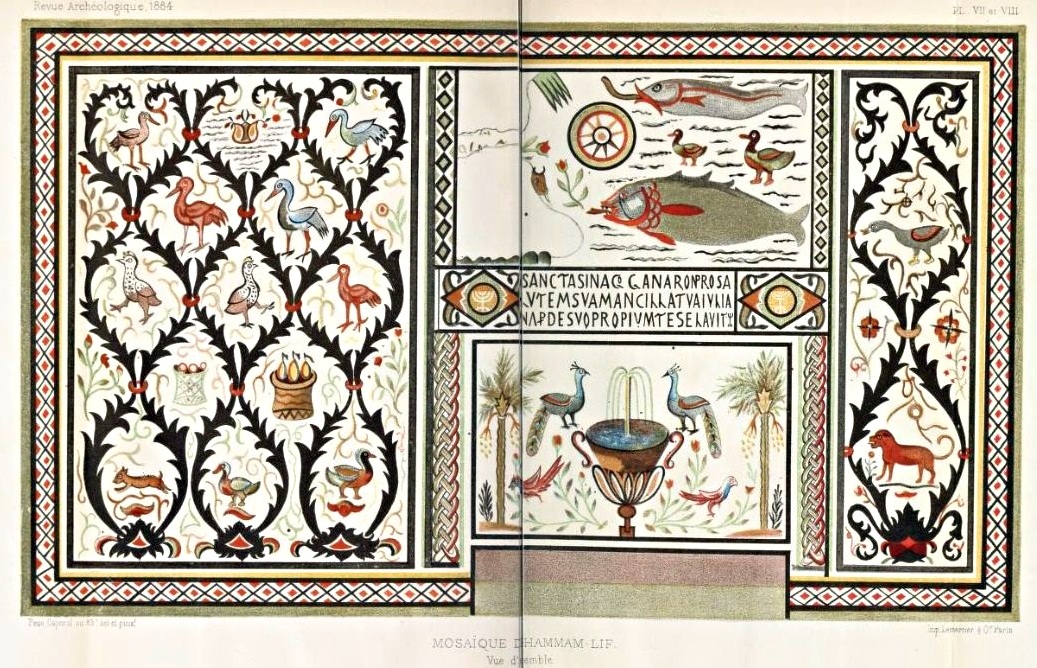 Revue Archéologique, 1884
PL. VII et VIII
SANCTASINAGOGANARONPROSA
LVTEMSVAMANCILLATVAIVLIA
NAPDESVOPROPIVMTESELAVIT
imp. Lemercier & Cie Paris
MOSAÏQUE D'HAMMAM-LIF.
Vue d'ensemble